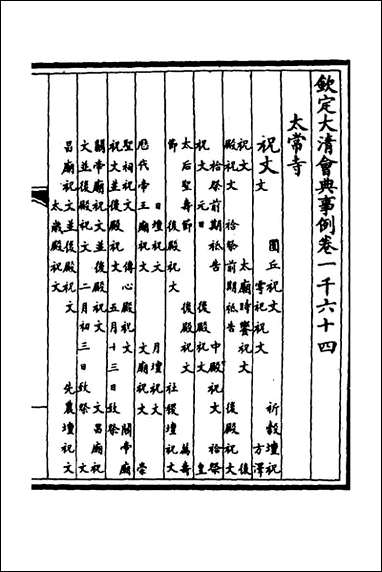 欽定大清會典事例卷一千六十四
太常寺
祝文 圜丘祝文 祈穀壇祝
文 雩祀祝文 方澤
祝文 太廟時饗祝文 後
殿祝文 祫祭前期祗告 後殿祝文
祫祭前期祗告 中殿祝文 祫祭
祝文 元旦 後殿祝文 皇
太后聖壽節 後殿祝文 萬壽
節 後殿祝文 社稷壇祝文
日壇祝文 月壇祝文
歷代帝王廟祝文 文廟祝文 崇
聖祠祝文 傳心殿祝文 關帝廟
祝文並後殿祝文 五月十三日致祭
關帝廟祝文並後殿祝文 文昌廟祝
文並後殿祝文 二月初三日致祭 文
昌廟祝文並後殿祝文 先農壇祝文
太歲殿祝文